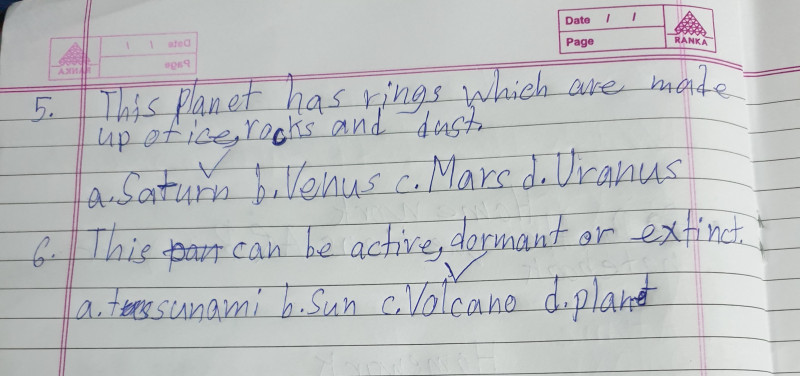 Date / /
Page
RANKA
5. This planet has rings which are made
up of ice, rocks and dust.
a. Saturn b. Venus c. Mars d. Uranus
6. This can be active, dormant or extinct.
a. tsunami b. Sun c. Volcano d. planet